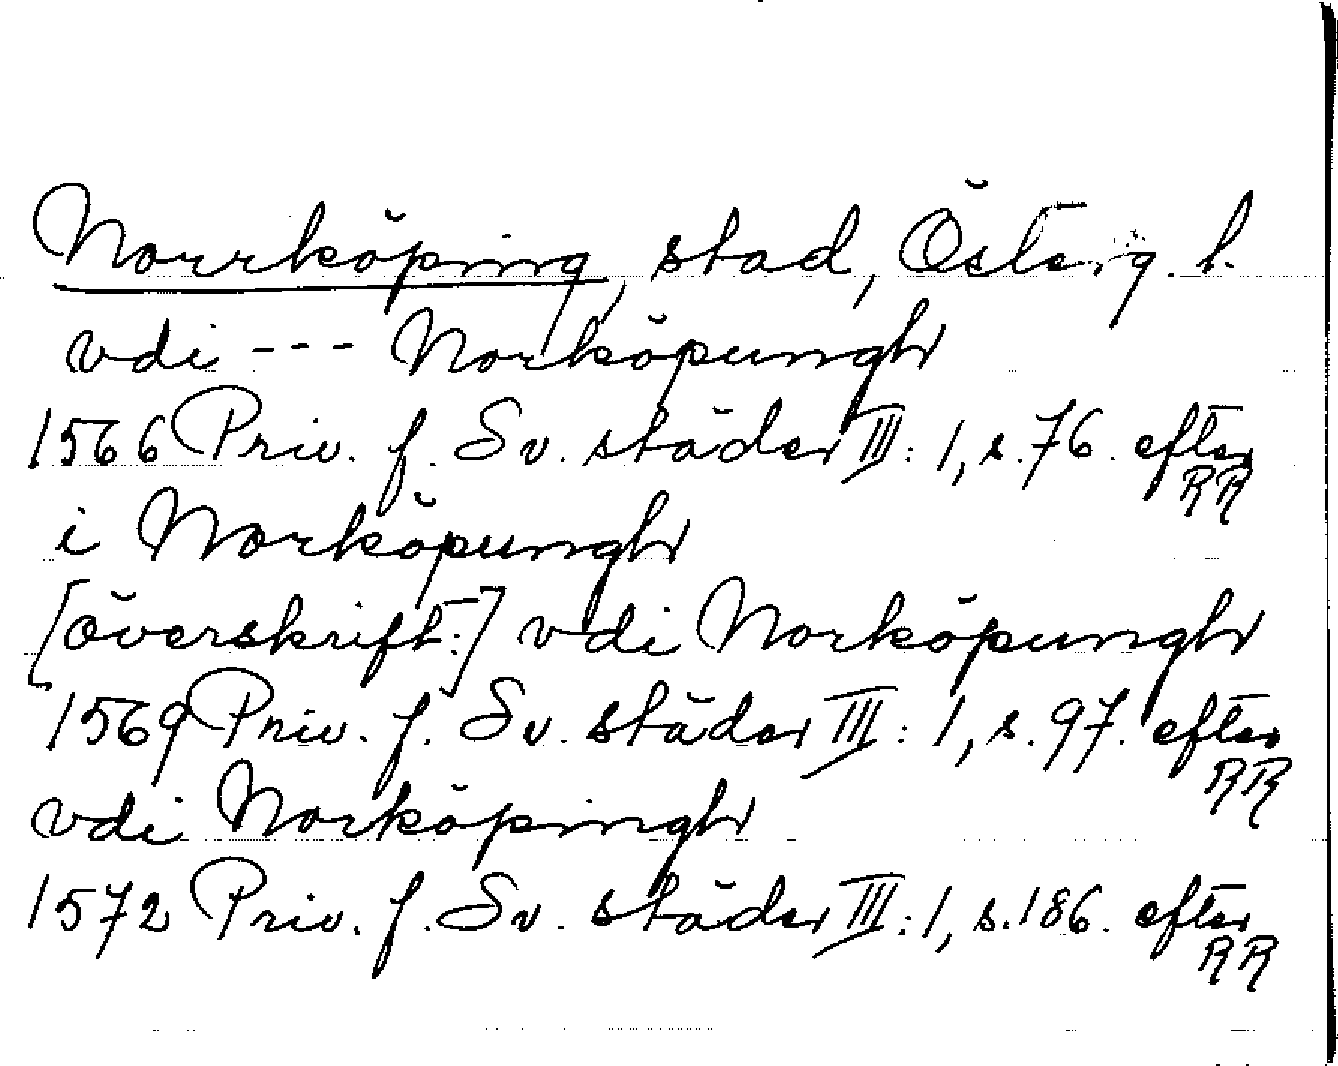 Norrköping, stad, Österg. l.
vdi --- Norköpungh
1566 Priv. f. Sv. städer III: 1, s. 76. efter RR
i Norköpungh
[överskift:] vdi Norköpungh
1569 Priv. f. Sv. städer III: 1, s. 97. efter RR
vdi Norköpingh
1572 Priv. f. Sv. städer III: 1, s. 186. efter RR